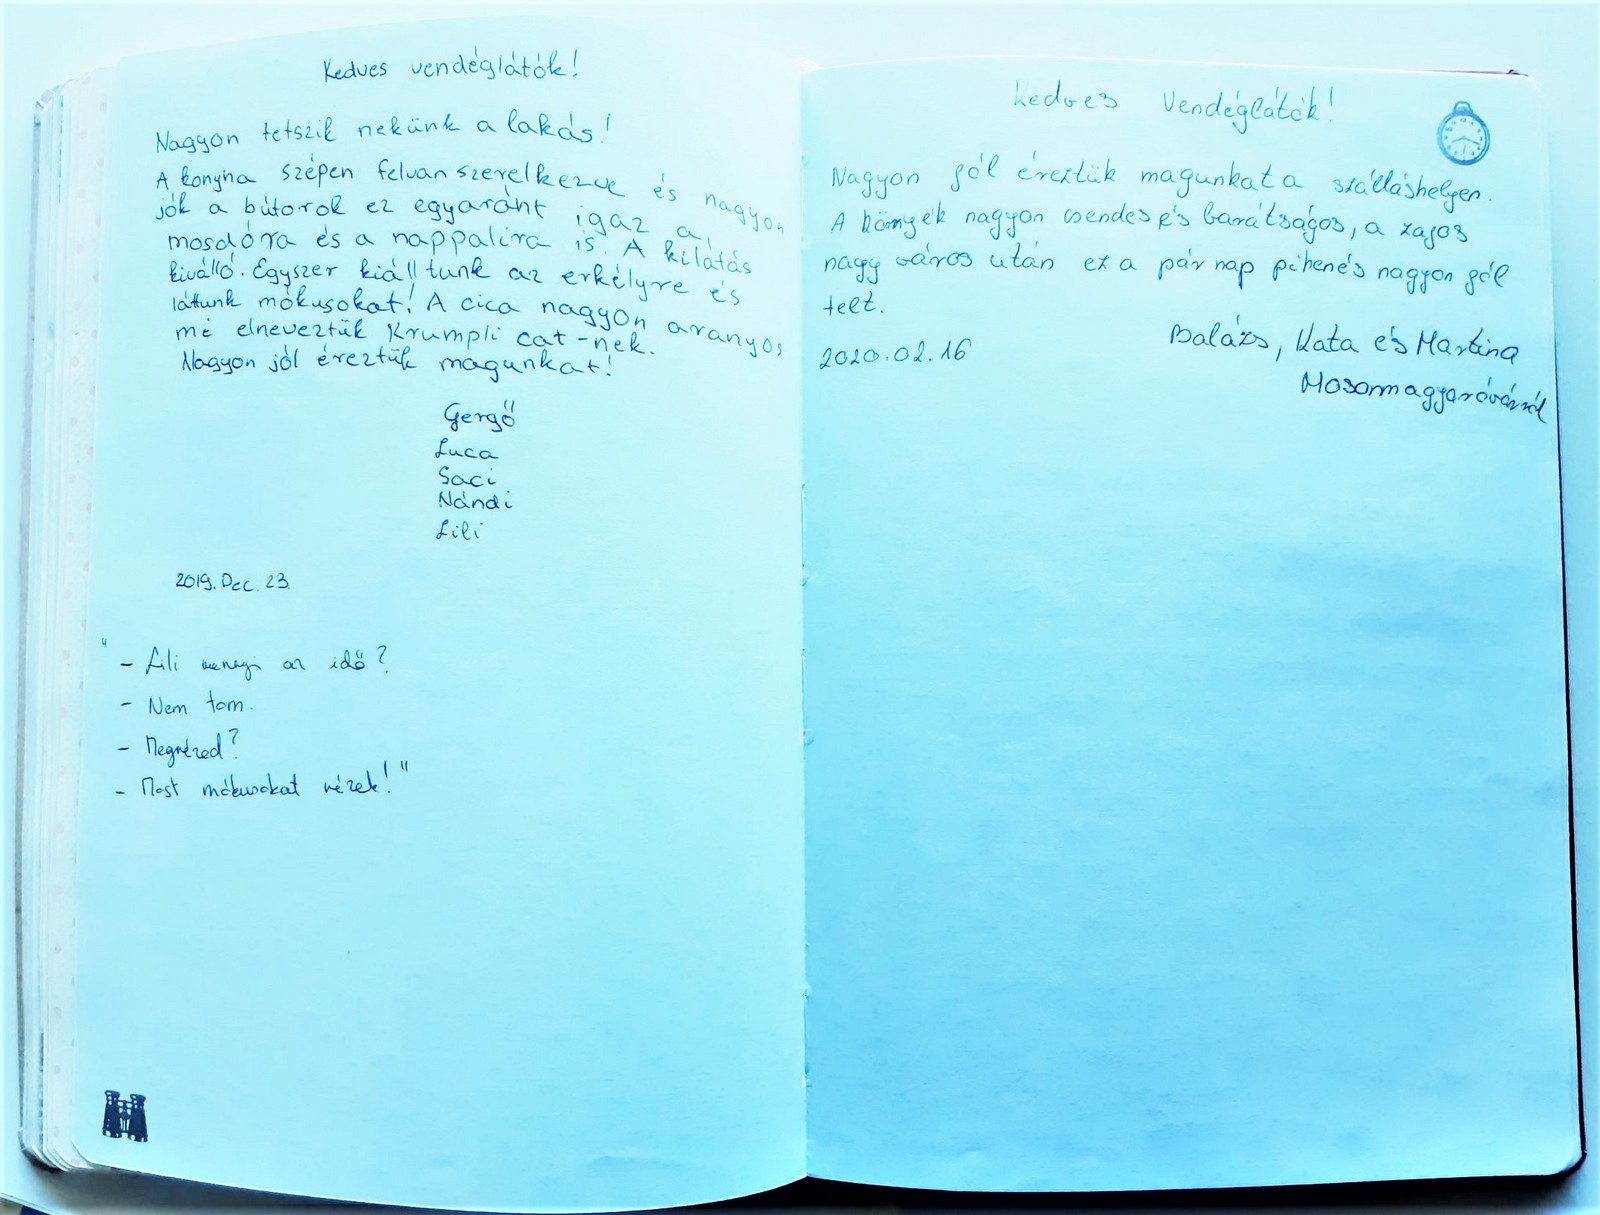 Kedves vendéglátók!
Nagyon tetszik nekünk a lakás!
A konyha szépen felvan szerelkezve és nagyon
jók a bútorok ez egyaránt igaz a
mosdóra és a nappalira is. A kilátás
kiválló. Egyszer kiálltunk az erkélyre és
láttunk mókusokat! A cica nagyon aranyos
mi elneveztük Krumpli cat-nek.
Nagyon jól éreztük magunkat!
Gergő
Luca
Saci
Nándi
Lili
2019. Dec. 23.
"- Lili mennyi az idő?
- Nem tom.
- Megnézed?
- Most mókusokat nézek!"
Kedves Vendéglátók!
Nagyon jól éreztük magunkat a szálláshelyen.
A környék nagyon csendes és barátságos, a zajos
nagy város után ez a pár nap pihenés nagyon jól
telt.
2020.02.16
Balázs, Kata és Martina
Mosonmagyaróvárról